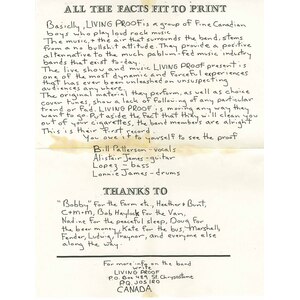 ALL THE FACTS FIT TO PRINT
Basiclly, LIVING PROOF is a group of Fine Canadian
boys who play loud rock music
The music, & the air that surrounds the band, stems
from a no bullshit attitude. They provide a positive
alternative to the much pablum-Fed music industry
bands that exist to-day.
The live show and music LIVING PROOF present is
one of the most dynamic and forceful experiences
that has ever been unleashed on unsuspecting
audiences anywhere.
The original material they perform, as well as choice
cover tunes, show a lack of following of any particular
trend or fad. LIVING PROOF is moving any way they
want to go. Put aside the fact that they will clean you
out of your cigarettes, the band members are alright
This is their first record
You owe it to yourself to see the proof
Bill Patterson - vocals
Alistair James - guitar
Lopez - bass
Lonnie James - drums
THANKS TO
"Bobby" For the Form etc, Heather & Bunt,
Bob Haylock For the Van,
Nadine For the peaceful sleep, Doug for
the beer money, Kate for the bus, Marshall,
Fender, Ludwig, Traynor, and everyone else
along the way.
For more info on the band
write
LIVING PROOF
P.O. Box 489 St. Chrysostome
PQ J0S 1R0
CANADA